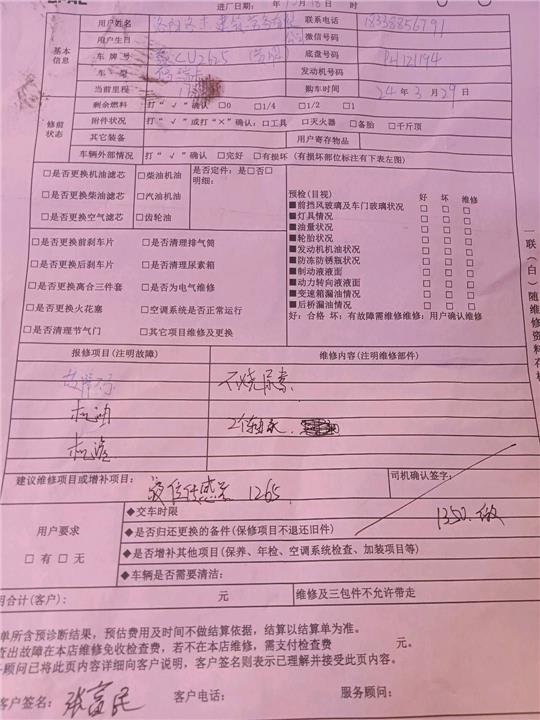 进厂日期: 年 月18日 时
基本信息
用户姓名 联系电话 18338856791
用户生日 微信号码
车牌号 CU2625 底盘号码 PH121194
车型 发动机号码
当前里程 购车时间 24年3月29日
修前状态
剩余燃料 打“√”确认 □0 □1/4 □1/2 □1
附件状况 打“√”或打“×”确认: □工具 □灭火器 □备胎 □千斤顶
其它装备 用户寄存物品
车辆外部情况 打“√”确认 □完好 □有损坏 (有损坏部位标注有下表左图)
□是否更换机油滤芯 □柴油机油 是否定件: 是□否□
明细:
□是否更换柴油滤芯 □汽油机油
□是否更换空气滤芯 □齿轮油
□是否更换前刹车片 □是否清理排气筒
□是否更换后刹车片 □是否清理尿素箱
□是否更换离合三件套 □是否为电气维修
□是否更换火花塞 □空调系统是否正常运行
□是否清理节气门 □其它项目维修及更换
预检(目视) 好 坏 维修
■前挡风玻璃及车门玻璃状况 □ □ □
■灯具情况 □ □ □
■油量状况 □ □ □
■轮胎状况 □ □ □
■发动机机油状况 □ □ □
■防冻防锈瓶状况 □ □ □
■制动液液面 □ □ □
■动力转向液液面 □ □ □
■变速箱漏油情况 □ □ □
■后桥漏油情况 □ □ □
好: 合格 坏: 有故障需维修维修: 用户确认维修
一联(白)随维修资料存档
报修项目(注明故障) 维修内容(注明维修部件)
故障灯 不烧尿素
机油
机滤
建议维修项目或增补项目: 传感器 1265. 司机确认签字:
1350.
用户要求
□有 □无
◆交车时限
◆是否归还更换的备件(保修项目不退还旧件)
◆是否增补其他项目(保养、年检、空调系统检查、加装项目等)
◆车辆是否需要清洁:
用合计(客户): 元 维修及三包件不允许带走
单所含预诊断结果, 预估费用及时间不做结算依据, 结算以结算单为准。
查出故障在本店维修免收检查费, 若不在本店维修, 需支付检查费 元。
顾问已将此页内容详细向客户说明, 客户签名则表示已理解并接受此页内容。
客户签名: 张富民 客户电话: 服务顾问: